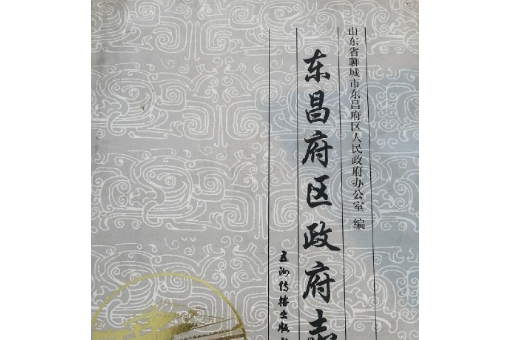 山东省聊城市东昌府区人民政府办公室 编
东昌府区政府志
五洲传播出版